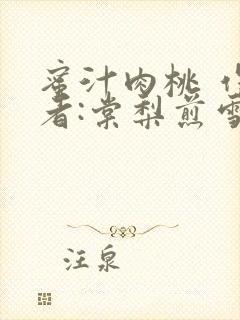 蜜汁肉桃 作
者:棠梨煎雪
汪泉